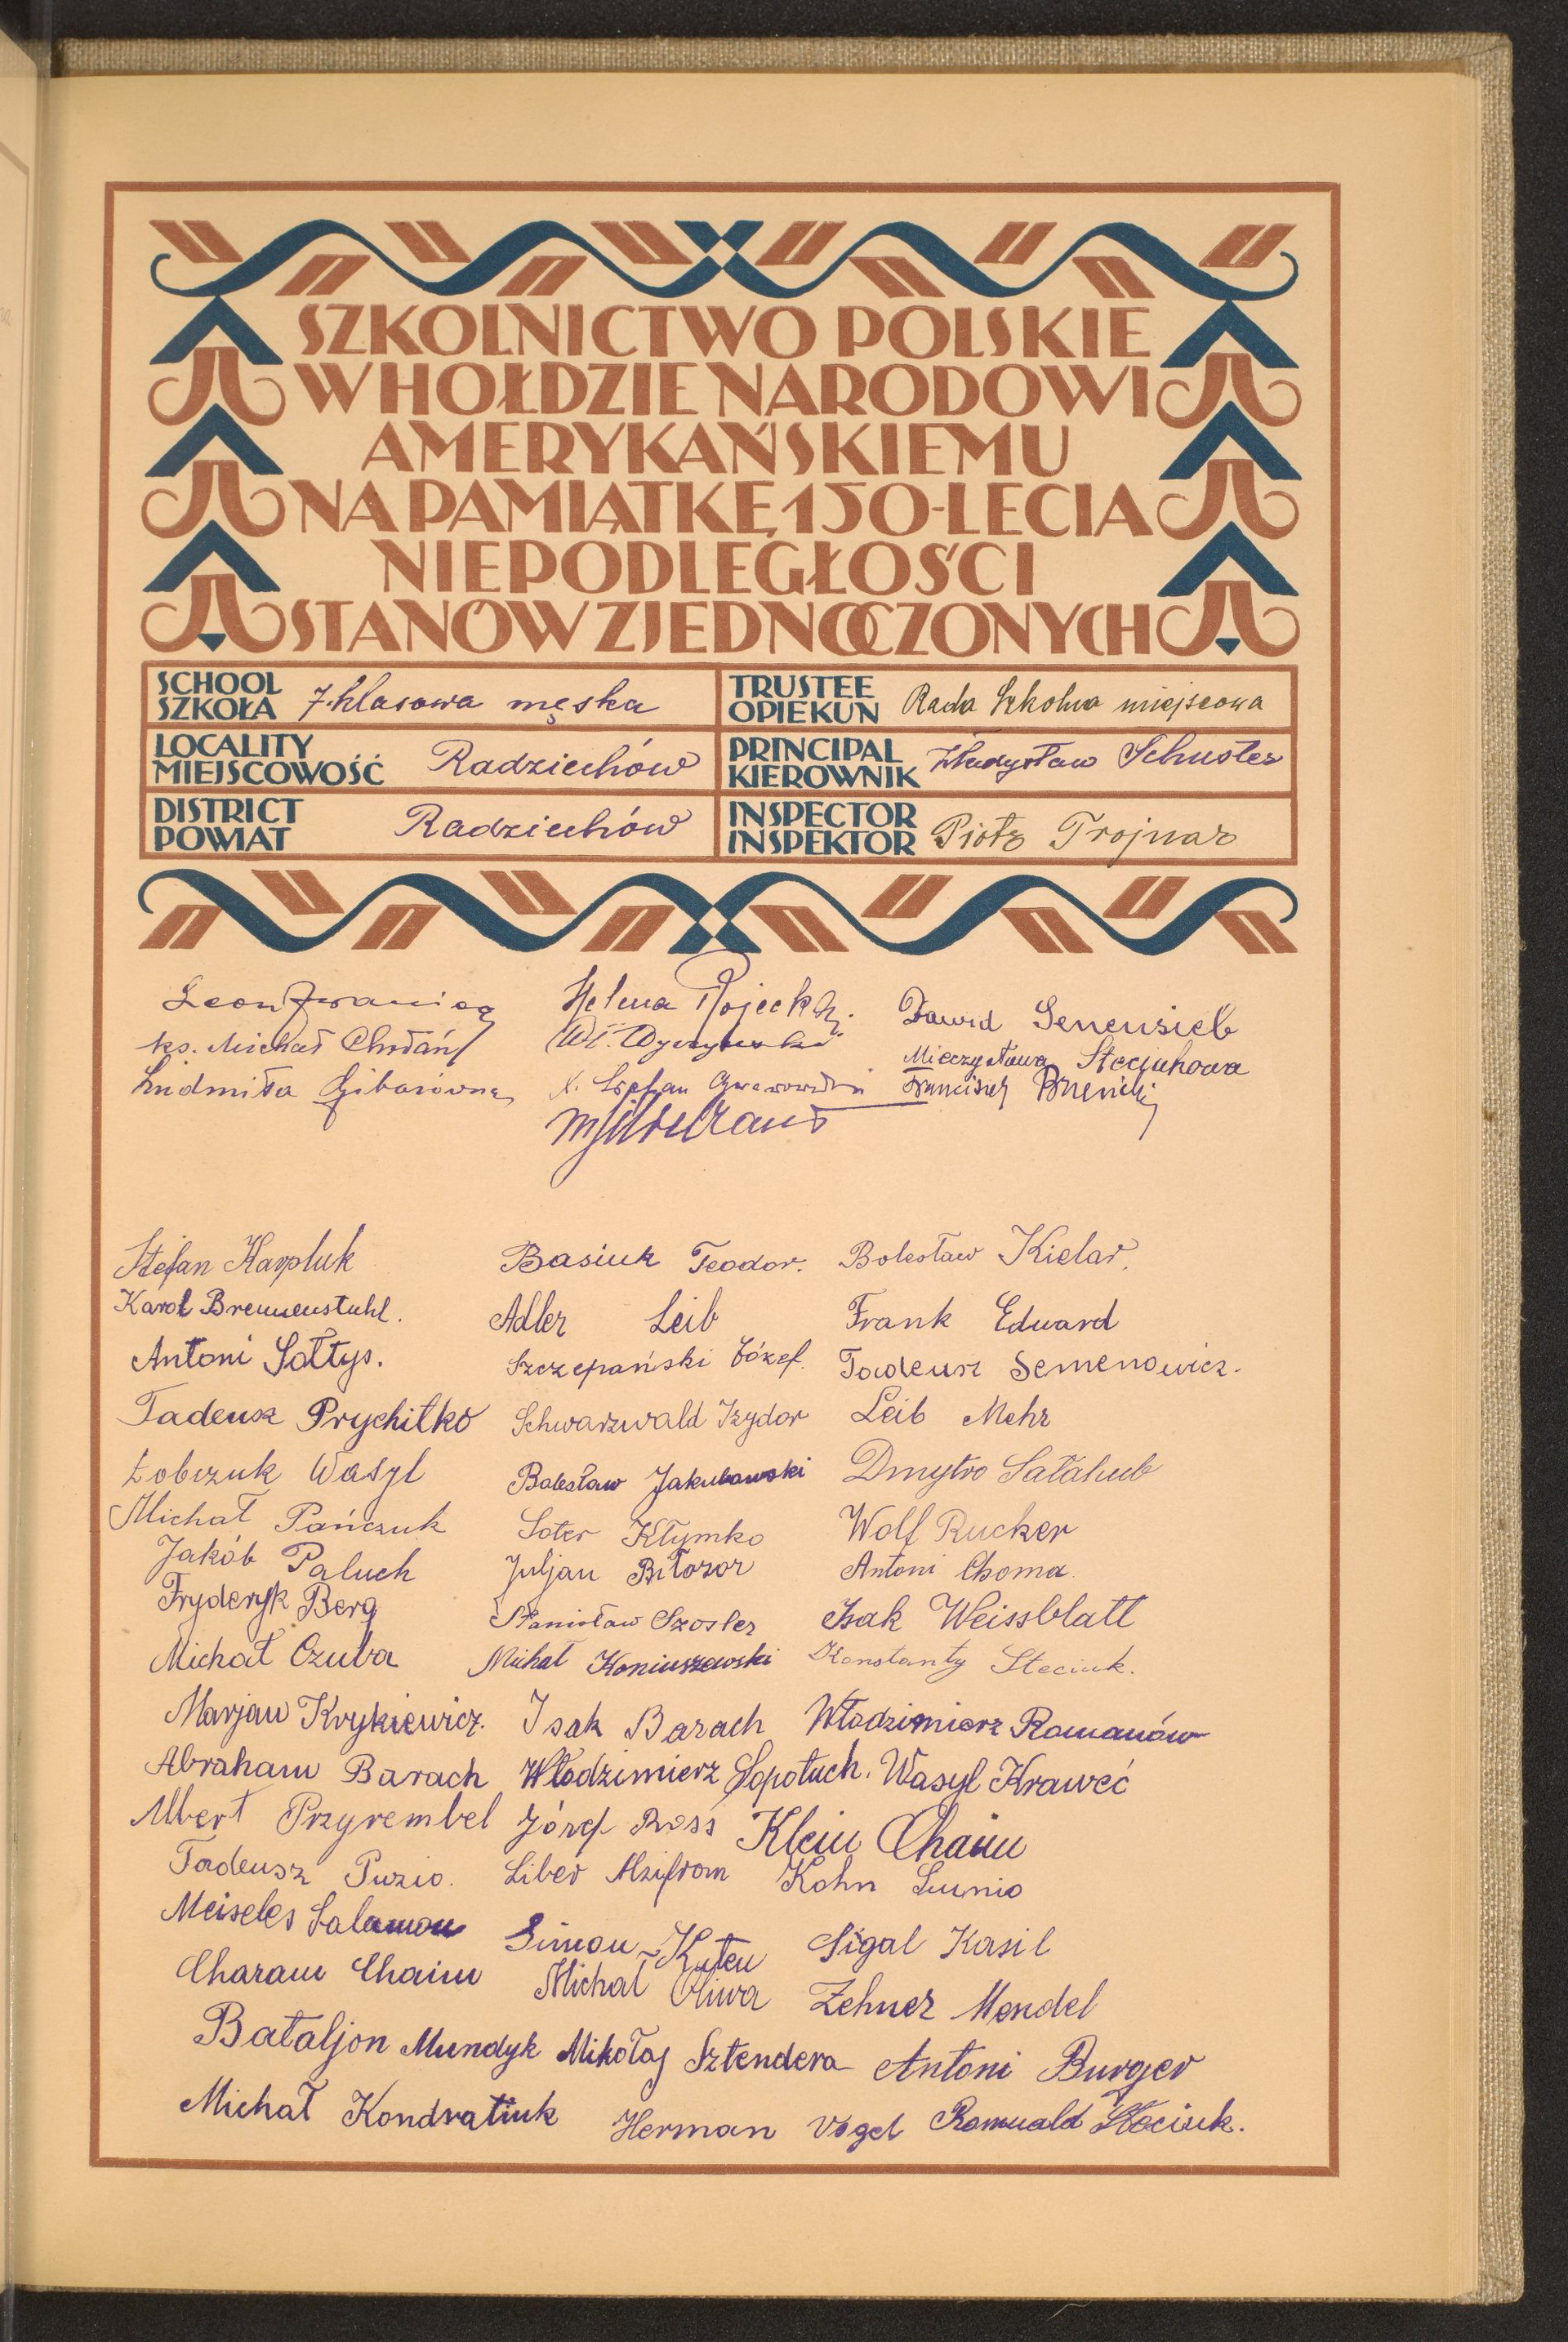 SZKOLNICTWO POLSKIE
W HOŁDZIE NARODOWI
AMERYKAŃSKIEMU
NA PAMIĄTKĘ 150-LECIA
NIEPODLEGŁOŚCI
STANÓW ZJEDNOCZONYCH
SCHOOL SZKOŁA 7-klasowa męska
TRUSTEE OPIEKUN Rada Szkolna miejscowa
LOCALITY MIEJSCOWOŚĆ Radziechów
PRINCIPAL KIEROWNIK Władysław Schuster
DISTRICT POWIAT Radziechów
INSPECTOR INSPEKTOR Piotr Trojnar
Leon
Helena
Dawid
ks. Michał
Mieczysława Steciukowa
Ludmiła Gibarówna
Franciszek
Stefan Karpluk Basiuk Teodor. Bolesław Kielar.
Karol Brennenstuhl. Adler Leib Frank Eduard
Antoni Sołtys. Szczepański Józef. Tadeusz Semenowicz.
Tadeusz Prychitko Schwarzwald Izydor Leib Mehr
Łobczuk Wasyl Bolesław Jakubowski Dmytro Sałahub
Michał Pańczuk Soter Kłymko Wolf Rucker
Jakób Paluch Juljan Biłozor Antoni Choma.
Fryderyk Berg Stanisław Szosler Isak Weissblatt
Michał Czuba Michał Koniuszewski Konstanty Steciuk.
Marjan Krykiewicz. Isak Barach Włodzimierz Romanów
Abraham Barach Włodzimierz Sopotuch. Wasyl Kraweć
Albert Przyrembel Józef Ross Klein Chaim
Tadeusz Puzio. Liber Kohn Sunio
Meiseles Salamon Simon Kuten Sigal Kasil
Charam Chaim Michał Oliwa Zehner Mendel
Bataljon Mundyk Mikołaj Sztendera Antoni Burger
Michał Kondratiuk Herman Vogel Romuald Stociuk.